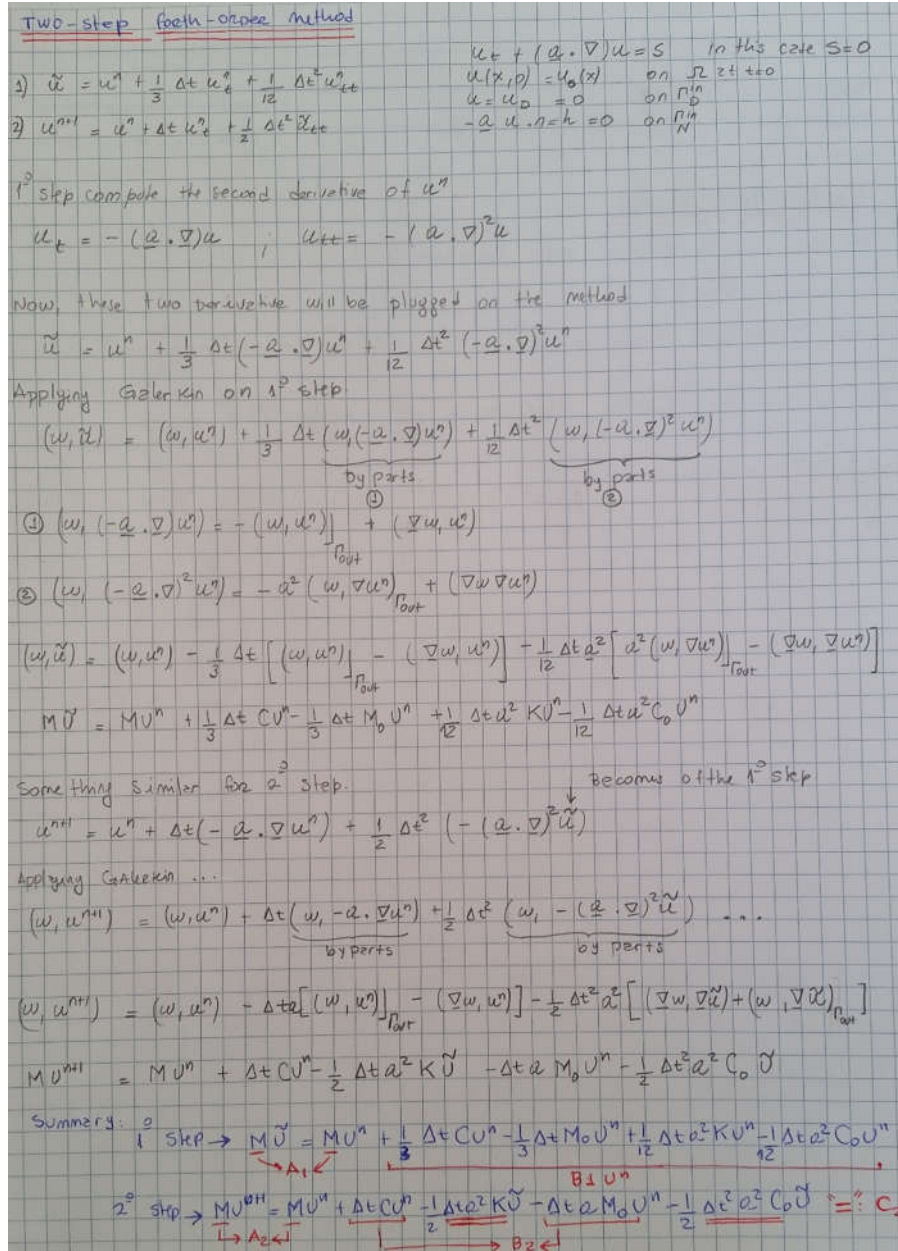 Two-step foeth-ordee method
u_t + (a . ∇)u = s in this case s=0
u(x,0) = u_0(x) on Ω at t=0
1) ũ = u^n + 1/3 Δt u^n_t + 1/12 Δt^2 u^n_tt
u = u_D = 0 on Γ^in_D
2) u^{n+1} = u^n + Δt u^n_t + 1/2 Δt^2 ũ_tt
-a u . n = h = 0 on Γ^in_N
1º step compute the second derivative of u^n
u_t = - (a . ∇)u ; u_tt = - (a . ∇)^2 u
Now, these two derivative will be plugged on the method
ũ = u^n + 1/3 Δt (-a . ∇)u^n + 1/12 Δt^2 (-a . ∇)^2 u^n
Applying Galerkin on 1º step
(w, ũ) = (w, u^n) + 1/3 Δt (w, (-a . ∇)u^n) + 1/12 Δt^2 (w, (-a . ∇)^2 u^n)
by parts by parts
① ②
① (w, (-a . ∇)u^n) = - (w, u^n)]_Γout + (∇w, u^n)
② (w, (-a . ∇)^2 u^n) = - a^2 (w, ∇u^n)_Γout + (∇w ∇u^n)
(w, ũ) = (w, u^n) - 1/3 Δt [(w, u^n)]_Γout - (∇w, u^n)] - 1/12 Δt a^2 [a^2 (w, ∇u^n)]_Γout - (∇w, ∇u^n)]
M Ũ = M U^n + 1/3 Δt C U^n - 1/3 Δt M_0 U^n + 1/12 Δt a^2 K U^n - 1/12 Δt a^2 C_0 U^n
Something similar for 2º step.
Becomes of the 1º step
u^{n+1} = u^n + Δt (- a . ∇u^n) + 1/2 Δt^2 (- (a . ∇)^2 ũ)
Applying GAlerkin ...
(w, u^{n+1}) = (w, u^n) + Δt (w, -a . ∇u^n) + 1/2 Δt^2 (w, - (a . ∇)^2 ũ) ...
by parts by parts
(w, u^{n+1}) = (w, u^n) - Δt a [(w, u^n)]_Γout - (∇w, u^n)] - 1/2 Δt^2 a^2 [(∇w, ∇ũ) + (w, ∇ũ)_Γout]
M U^{n+1} = M U^n + Δt C U^n - 1/2 Δt a^2 K Ũ - Δt a M_0 U^n - 1/2 Δt^2 a^2 C_0 Ũ
Summary:
1º step → M Ũ = M U^n + 1/3 Δt C U^n - 1/3 Δt M_0 U^n + 1/12 Δt a^2 K U^n - 1/12 Δt a^2 C_0 U^n
A_1 B1 U^n
2º step → M U^{n+1} = M U^n + Δt C U^n - 1/2 Δt a^2 K Ũ - Δt a M_0 U^n - 1/2 Δt^2 a^2 C_0 Ũ "=": C
A_2 B_2